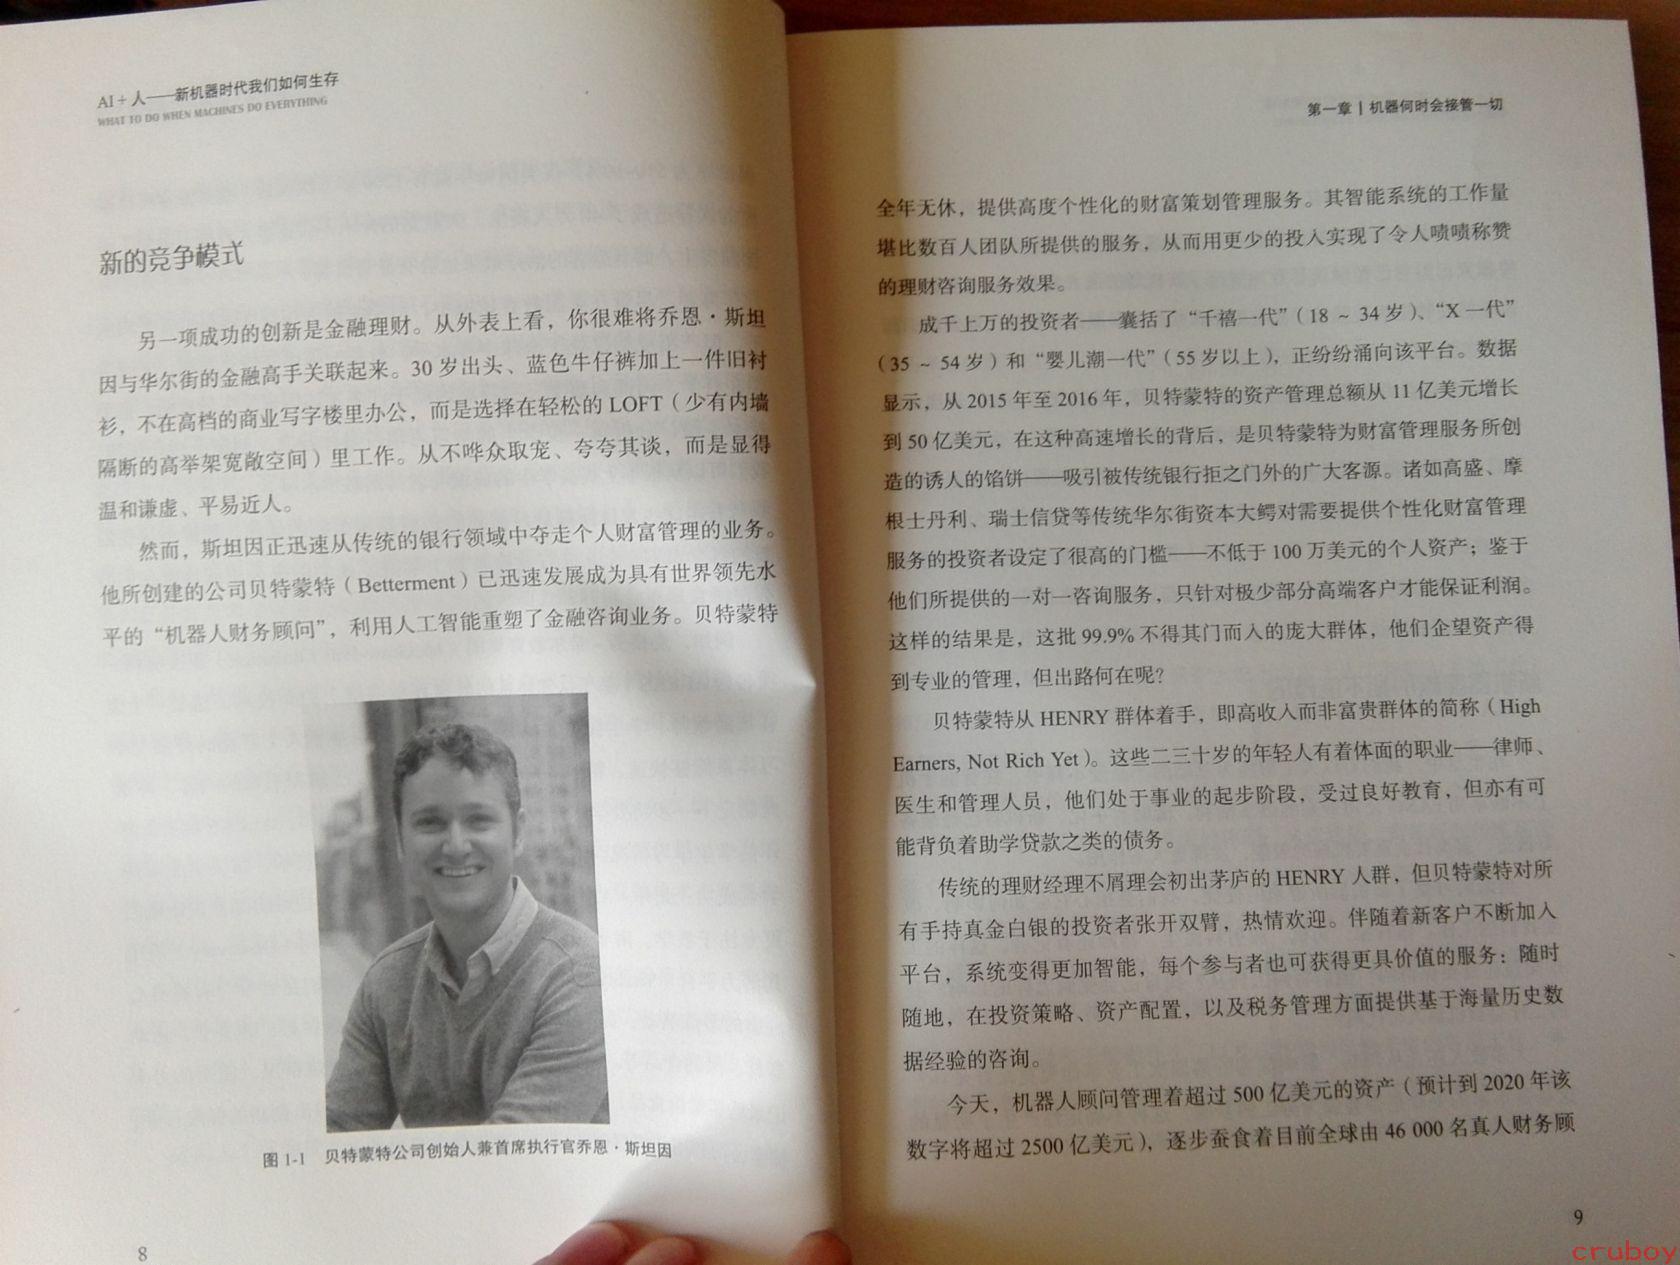 AI+人——新机器时代我们如何生存
WHAT TO DO WHEN MACHINES DO EVERYTHING
新的竞争模式
另一项成功的创新是金融理财。从外表上看，你很难将乔恩·斯坦
因与华尔街的金融高手关联起来。30 岁出头、蓝色牛仔裤加上一件旧衬
衫，不在高档的商业写字楼里办公，而是选择在轻松的 LOFT（少有内墙
隔断的高举架宽敞空间）里工作。从不哗众取宠、夸夸其谈，而是显得
温和谦虚、平易近人。
然而，斯坦因正迅速从传统的银行领域中夺走个人财富管理的业务。
他所创建的公司贝特蒙特（Betterment）已迅速发展成为具有世界领先水
平的“机器人财务顾问”，利用人工智能重塑了金融咨询业务。贝特蒙特
图 1-1 贝特蒙特公司创始人兼首席执行官乔恩·斯坦因
8
第一章 | 机器何时会接管一切
全年无休，提供高度个性化的财富策划管理服务。其智能系统的工作量
堪比数百人团队所提供的服务，从而用更少的投入实现了令人啧啧称赞
的理财咨询服务效果。
成千上万的投资者——囊括了“千禧一代”（18 ~ 34 岁）、“X 一代”
（35 ~ 54 岁）和“婴儿潮一代”（55 岁以上），正纷纷涌向该平台。数据
显示，从 2015 年至 2016 年，贝特蒙特的资产管理总额从 11 亿美元增长
到 50 亿美元，在这种高速增长的背后，是贝特蒙特为财富管理服务所创
造的诱人的馅饼——吸引被传统银行拒之门外的广大客源。诸如高盛、摩
根士丹利、瑞士信贷等传统华尔街资本大鳄对需要提供个性化财富管理
服务的投资者设定了很高的门槛——不低于 100 万美元的个人资产；鉴于
他们所提供的一对一咨询服务，只针对极少部分高端客户才能保证利润。
这样的结果是，这批 99.9% 不得其门而入的庞大群体，他们企望资产得
到专业的管理，但出路何在呢？
贝特蒙特从 HENRY 群体着手，即高收入而非富贵群体的简称（High
Earners, Not Rich Yet）。这些二三十岁的年轻人有着体面的职业——律师、
医生和管理人员，他们处于事业的起步阶段，受过良好教育，但亦有可
能背负着助学贷款之类的债务。
传统的理财经理不屑理会初出茅庐的 HENRY 人群，但贝特蒙特对所
有手持真金白银的投资者张开双臂，热情欢迎。伴随着新客户不断加入
平台，系统变得更加智能，每个参与者也可获得更具价值的服务：随时
随地，在投资策略、资产配置，以及税务管理方面提供基于海量历史数
据经验的咨询。
今天，机器人顾问管理着超过 500 亿美元的资产（预计到 2020 年该
数字将超过 2500 亿美元），逐步蚕食着目前全球由 46 000 名真人财务顾
9
cruboy